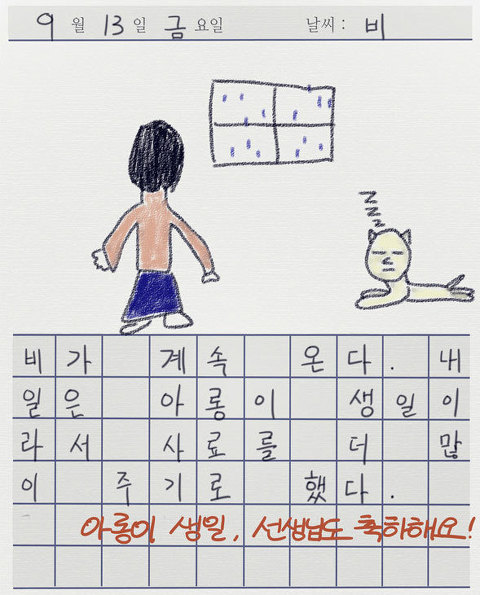 9월 13일 금요일 날씨: 비
z
z
z
z
비가 계속 온다. 내
일은 아롱이 생일이
라서 사료를 더 많
이 주기로 했다.
아롱이 생일, 선생님도 축하해요!